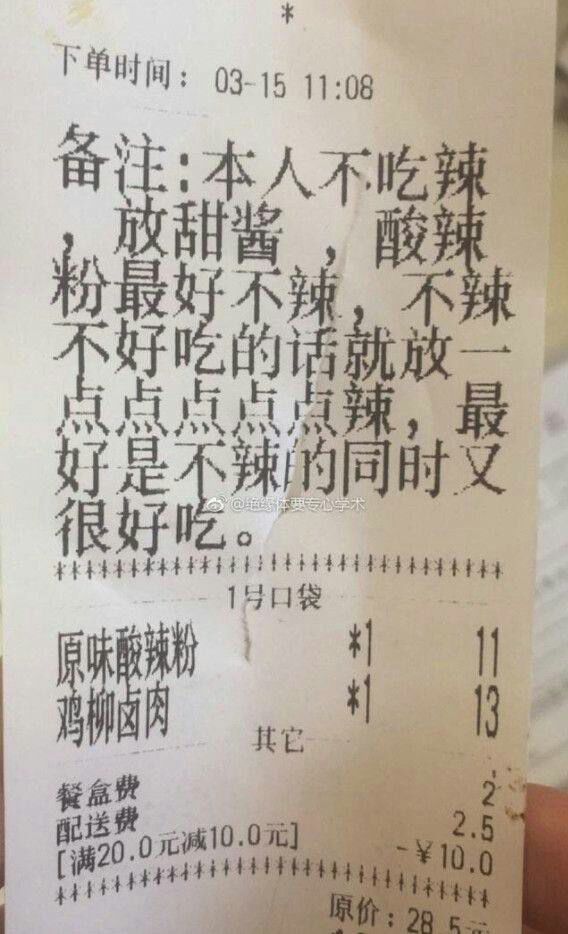 *
下单时间: 03-15 11:08
备注:本人不吃辣
，放甜酱，酸辣
粉最好不辣，不辣
不好吃的话就放一
点点点点点辣，最
好是不辣的同时又
很好吃。
@绝缘体要专心学术
********************************
1号口袋
原味酸辣粉 *1 11
鸡柳卤肉 *1 13
其它
餐盒费 2
配送费 2.5
[满20.0元减10.0元] -￥10.0
********************************
原价:28.5元